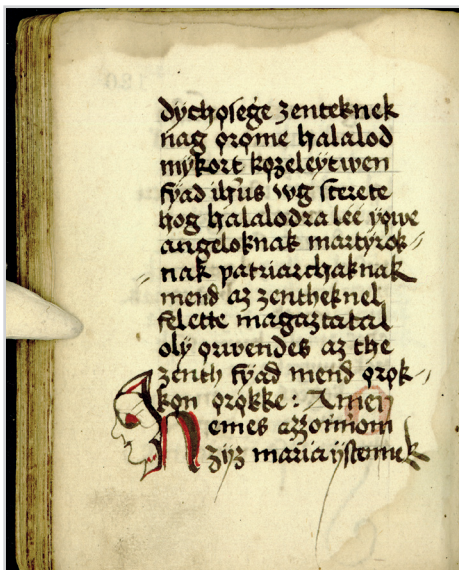 dychosege zenteknek
nag ọrọme halalod
mykort kọzeleytwen
fyad ihus wg scerete
hog halalodra leē yọwe
angeloknak martyrok⸗
nak patriarchaknak
mend az zentheknel
felette magaztatal
oly ọrwendes az the
zenth fyad mend ọrọk⸗
kọn ọrọkke : Amen
Nemes azzonnom
zyz maria ystennek